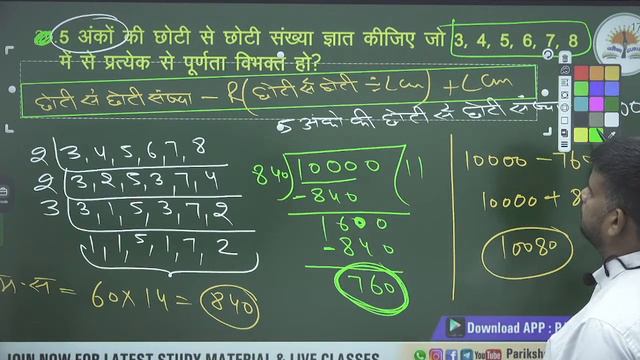 5 अंकों की छोटी से छोटी संख्या ज्ञात कीजिए जो 3, 4, 5, 6, 7, 8
में से प्रत्येक से पूर्णता विभक्त हो?
छोटी से छोटी संख्या - R(छोटी से छोटी ÷ Lcm) + Lcm
5 अंको की छोटी से छोटी
2 3, 4, 5, 6, 7, 8
2 3, 2, 5, 3, 7, 4
3 3, 1, 5, 3, 7, 2
1, 1, 5, 1, 7, 2
= 60 × 14 = 840
840) 10000 ( 11
- 840
1600
- 840
760
10000 - 760
10000 + 8
10080
Download APP :
JOIN NOW FOR LATEST STUDY MATERIAL & LIVE CLASSES
YouTube